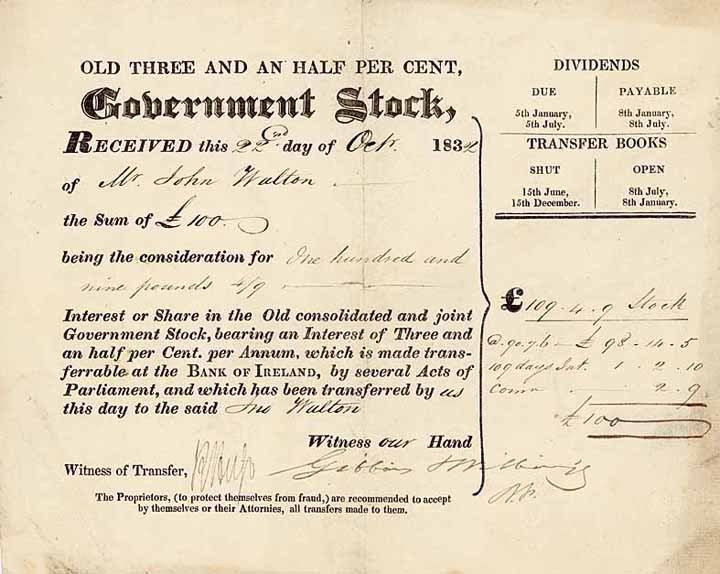 OLD THREE AND AN HALF PER CENT,
Government Stock,
RECEIVED this 22nd day of Octr. 1834
of Mr. John Walton
the Sum of £100
being the consideration for One hundred and
nine pounds 4/9
Interest or Share in the Old consolidated and joint
Government Stock, bearing an Interest of Three and
an half per Cent. per Annum, which is made trans-
ferrable at the BANK OF IRELAND, by several Acts of
Parliament, and which has been transferred by us
this day to the said Jno Walton
Witness our Hand
Witness of Transfer,
Gibbins
The Proprietors, (to protect themselves from fraud,) are recommended to accept
by themselves or their Attornies, all transfers made to them.
DIVIDENDS
DUE PAYABLE
5th January, 8th January,
5th July. 8th July.
TRANSFER BOOKS
SHUT OPEN
15th June, 8th July,
15th December. 8th January.
£109.4.9 Stock
@ 90 7/8 £98.14.5
109 days Int. 1.2.10
Comn 2.9
£100